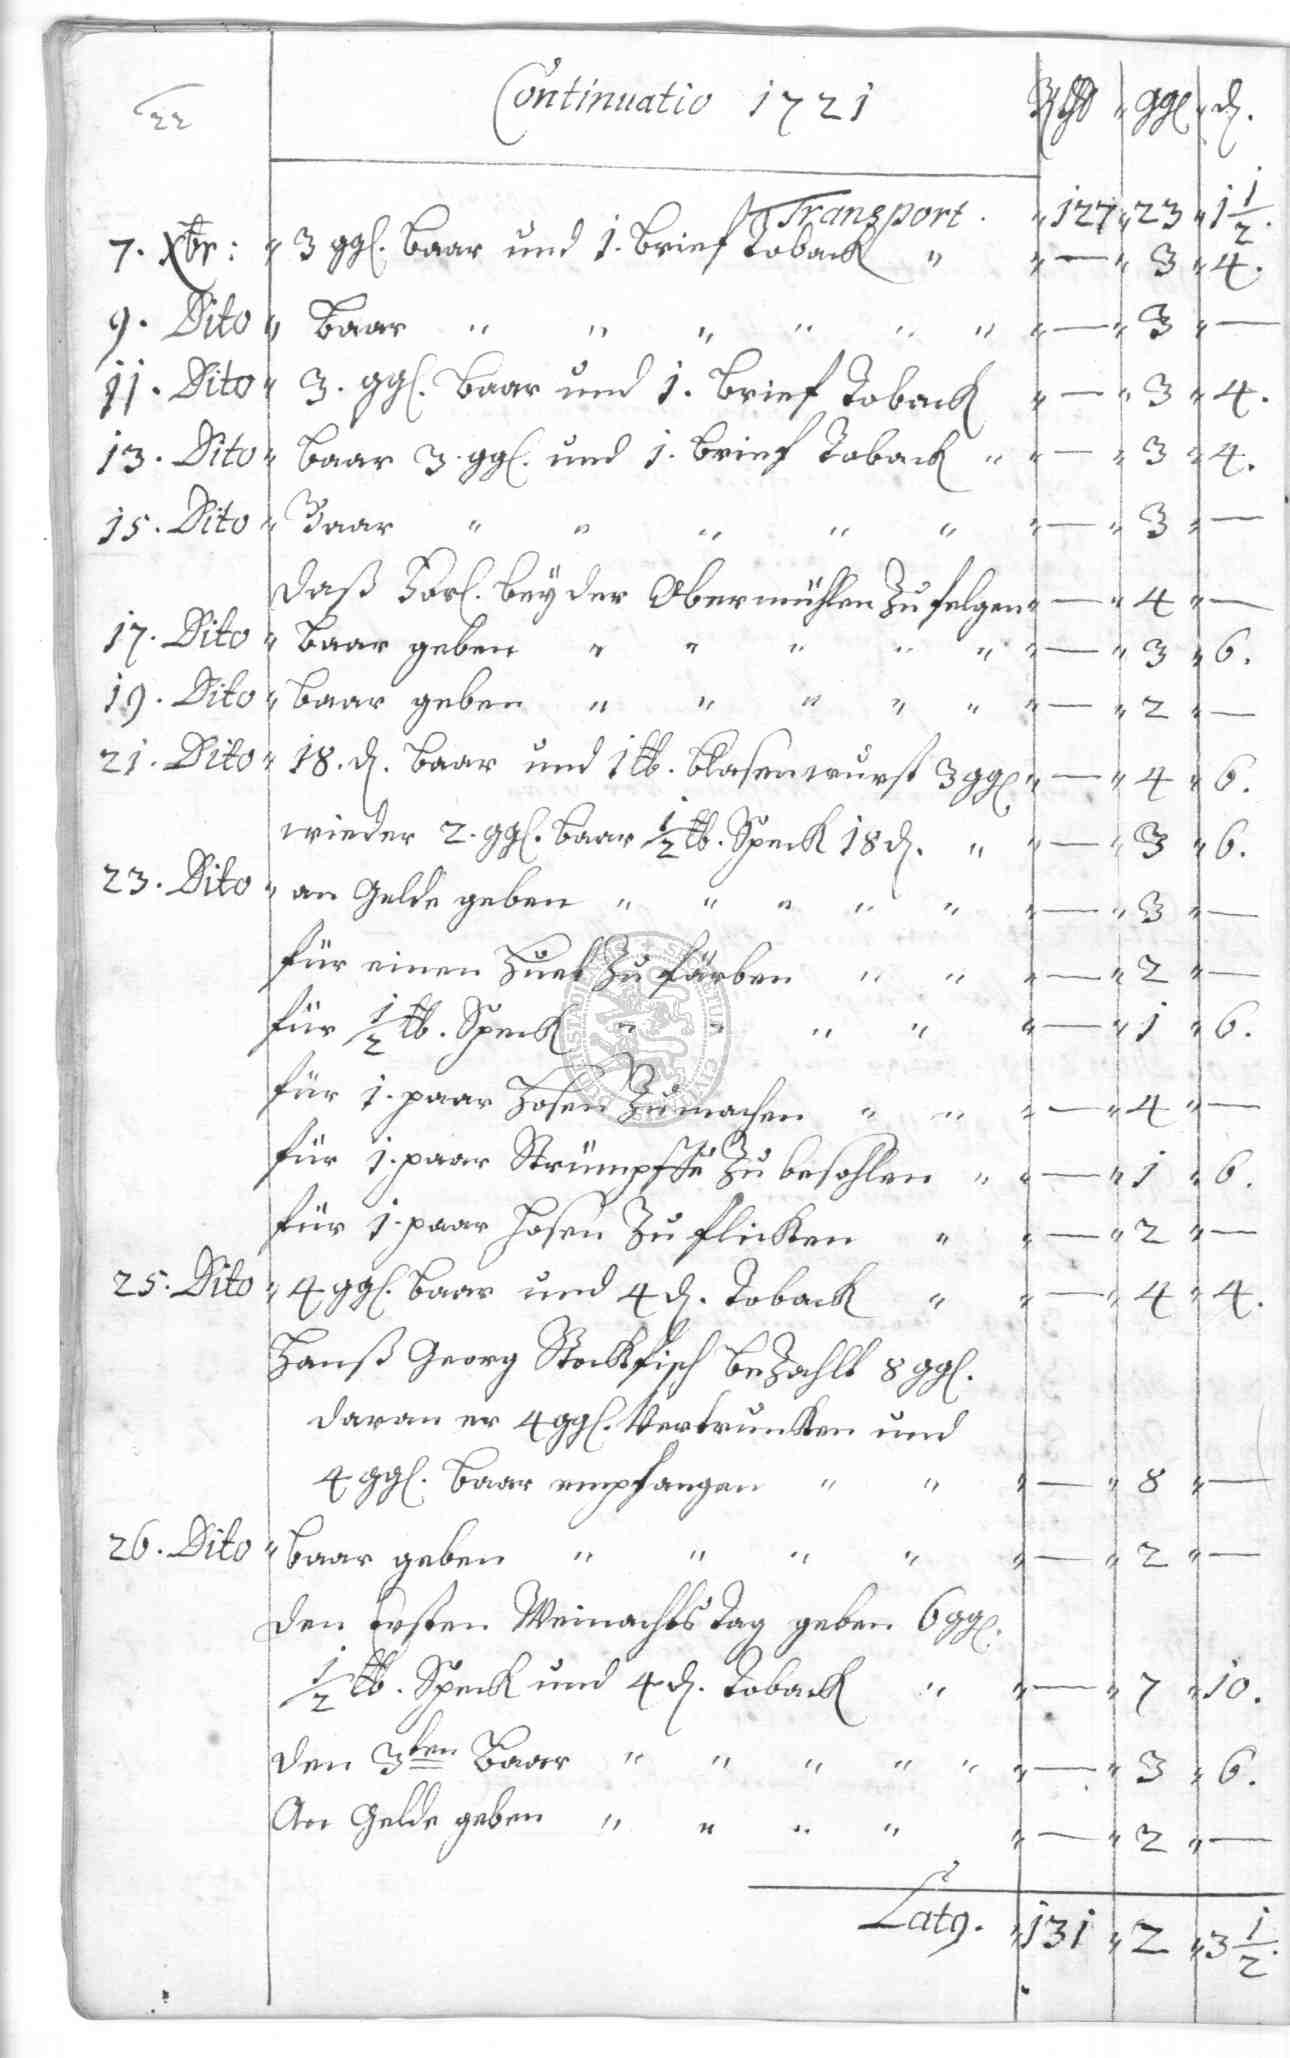 22
Continuatio 1721 Rthl " ggl " d.
Transport. " 127 " 23 " 1 1/2.
7. Xbr: " 3 ggl. baar und 1. brief Toback " " — " 3 " 4.
9. Dito " baar " " " " " " " — " 3 " —
11. Dito " 3. ggl. baar und 1. brief Toback " — " 3 " 4.
13. Dito " baar 3. ggl. und 1. brief Toback " " — " 3 " 4.
15. Dito " Baar " " " " " " — " 3 " —
daß bey der Obermühlen Zu felgen " — " 4 " —
17. Dito " baar geben " " " " " " — " 3 " 6.
19. Dito " baar geben " " " " " " — " 2 " —
21. Dito " 18. d. baar und 1 tb. blasenwurst 3 ggl. " — " 4 " 6.
wieder 2. ggl. baar 1/2 tb. Speck 18 d. " " — " 3 " 6.
23. Dito " an Gelde geben " " " " " " — " 3 " —
für einen Zu färben " " " — " 2 " —
für 1/2 tb. Speck " " " " " — " 1 " 6.
für 1. paar Hosen Zu machen " " " — " 4 " —
für 1. paar Strümpffe Zu besohlen " " — " 1 " 6.
für 1. paar Hosen Zu flicken " " — " 2 " —
25. Dito " 4 ggl. baar und 4 d. Toback " " — " 4 " 4.
Hanß Georg Stockfisch beZahlt 8 ggl.
daran er 4 ggl. Vertruncken und
4 ggl. baar empfangen " " " — " 8 " —
26. Dito " baar geben " " " " " — " 2 " —
den Ersten Weinachts Tag geben 6 ggl.
1/2 tb. Speck und 4 d. Toback " " — " 7 " 10.
den 3ten Baar " " " " " " — " 3 " 6.
An Gelde geben " " " " " — " 2 " —
Lat9. " 131 " 2 " 3 1/2.